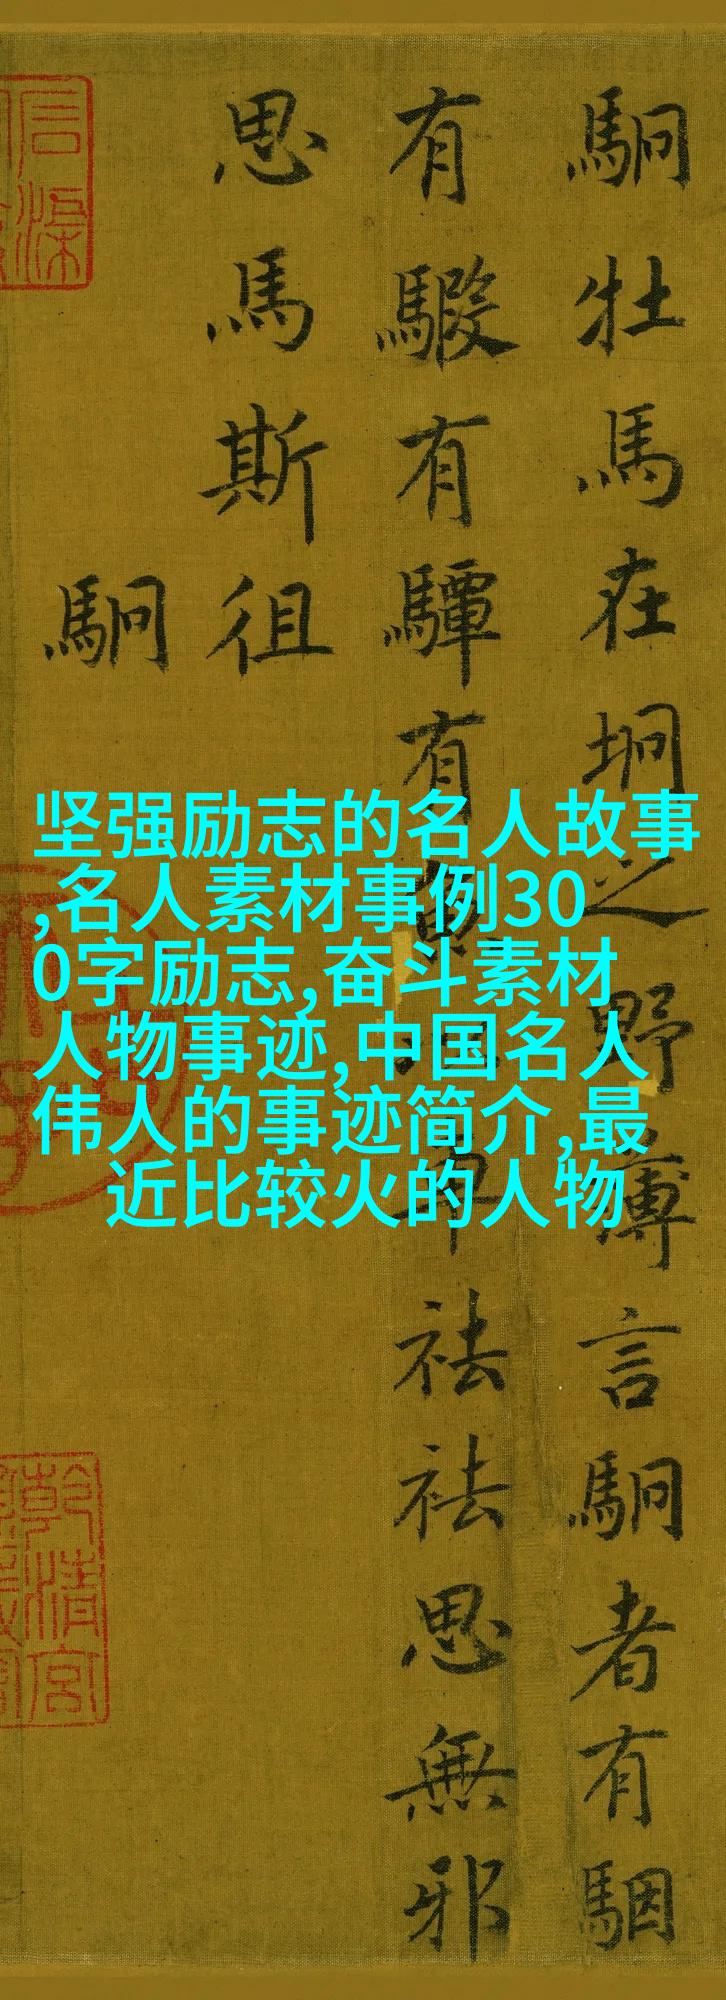 駉牡馬在坰之野薄言駉者有駰
有騢有驔有魚以車祛祛思無邪
思馬斯徂
駉
坚强励志的名人故事
,名人素材事例30
0字励志,奋斗素材
人物事迹,中国名人
伟人的事迹简介,最
近比较火的人物
乾清宮